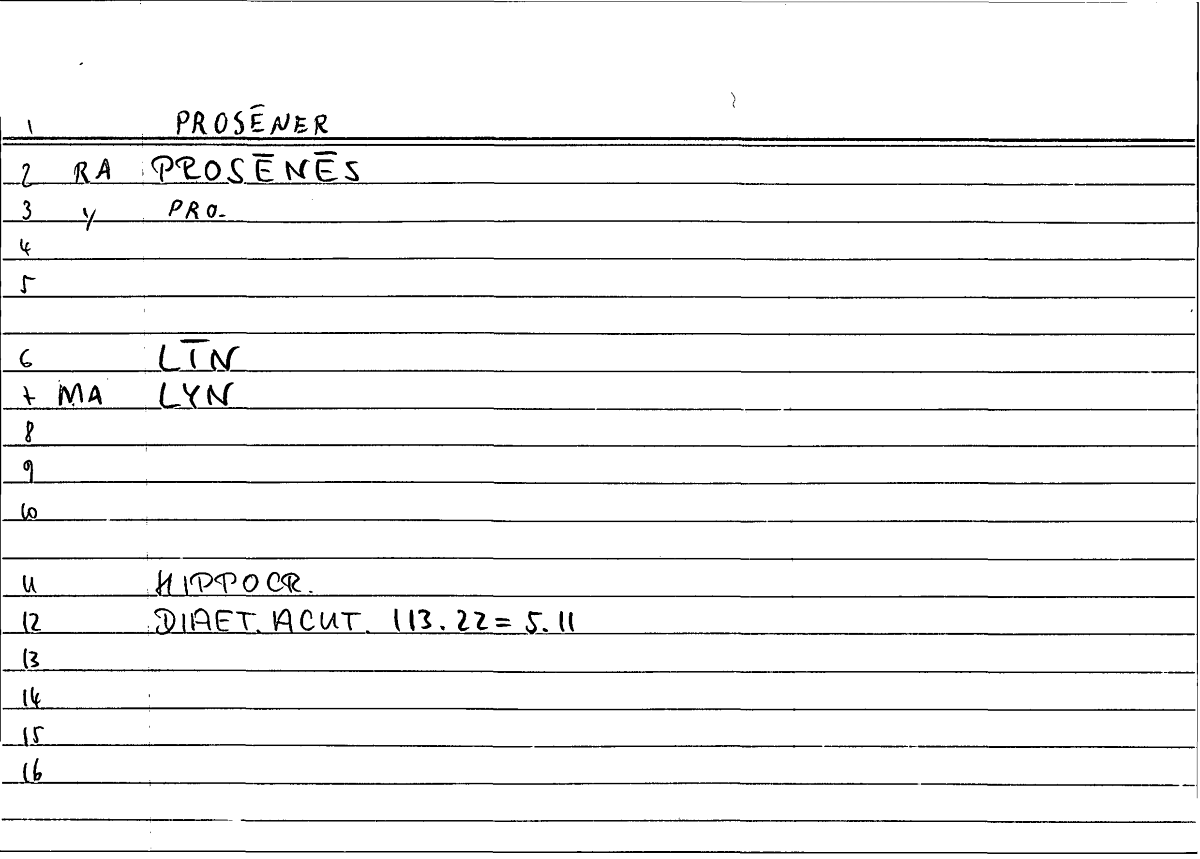 1 PROSĒNER
2 RA PROSĒNĒS
3 y PRO.
4
5
6 LĪN
7 MA LYN
8
9
10
11 HIPPOCR.
12 DIAET. ACUT. 113.22 = 5.11
13
14
15
16